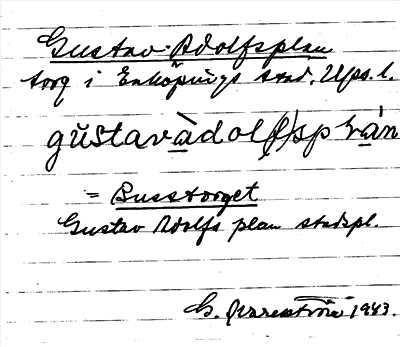 Gustav Adolfsplan
torg i Enköpings stad, Upps. l.
gŭstavàdol(f)splán
= Busstorget
Gustav Adolfs plan stadspl.
G. 1943.